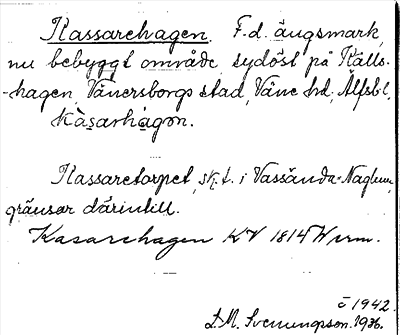 Kassarehagen. F.d. ängsmark,
nu bebyggt område sydöst på Källs-
-hagen, Vänersborgs stad, Väne hd, Älfsb.l.
kàsarhàgon.
Kassaretorpet, sk.t. i Vassända-Naglum,
gränsar därintill.
Kasarehagen KV 1814 Werm.
č 1942.
L.M. Svenungson. 1936.